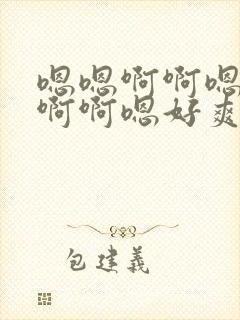 嗯嗯啊啊嗯
啊啊嗯好爽
包建義